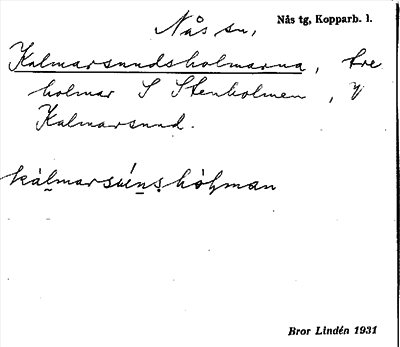 Nås sn, Nås tg, Kopparb. l.
Kalmarsundsholmarna, tre
holmar S Stenholmen, i
Kalmarsund.
Bror Lindén 1931